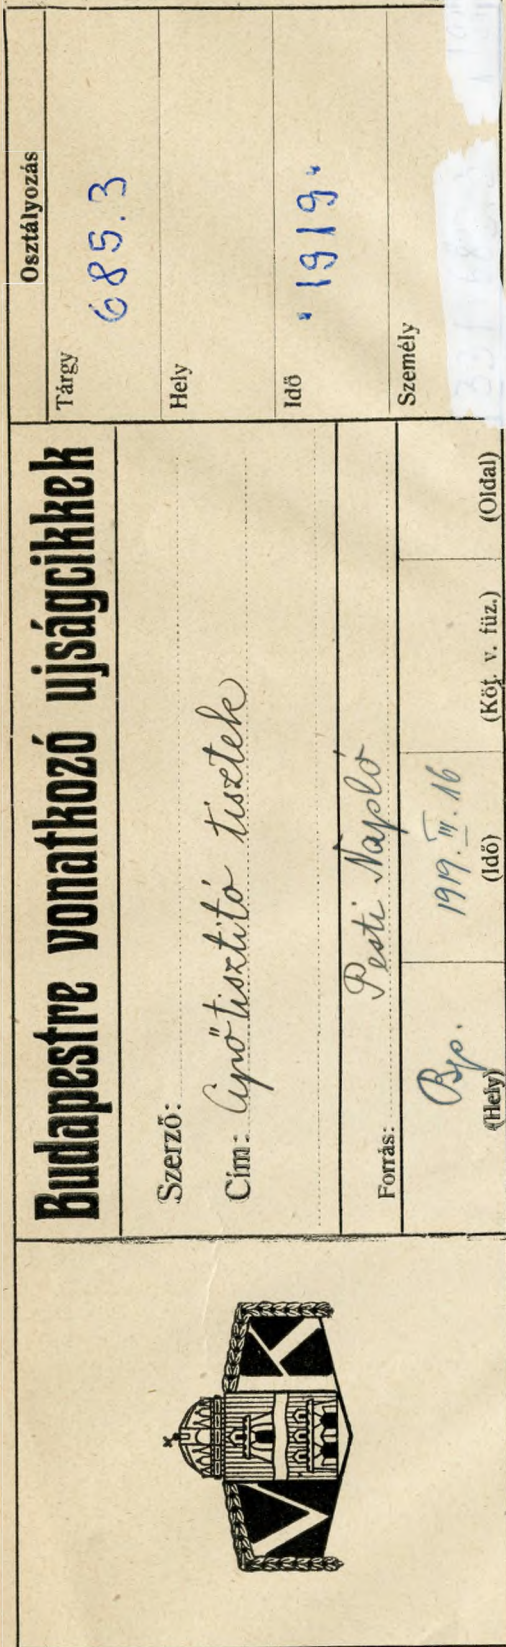 V K
Budapestre vonatkozó ujságcikkek
Szerző:
Cím: Cipőtisztító tisztek
Forrás: Pesti Napló
Bp. 1919. III. 16
(Hely) (Idő) (Köt. v. füz.) (Oldal)
Osztályozás
Tárgy 685.3
Hely
Idő "1919"
Személy